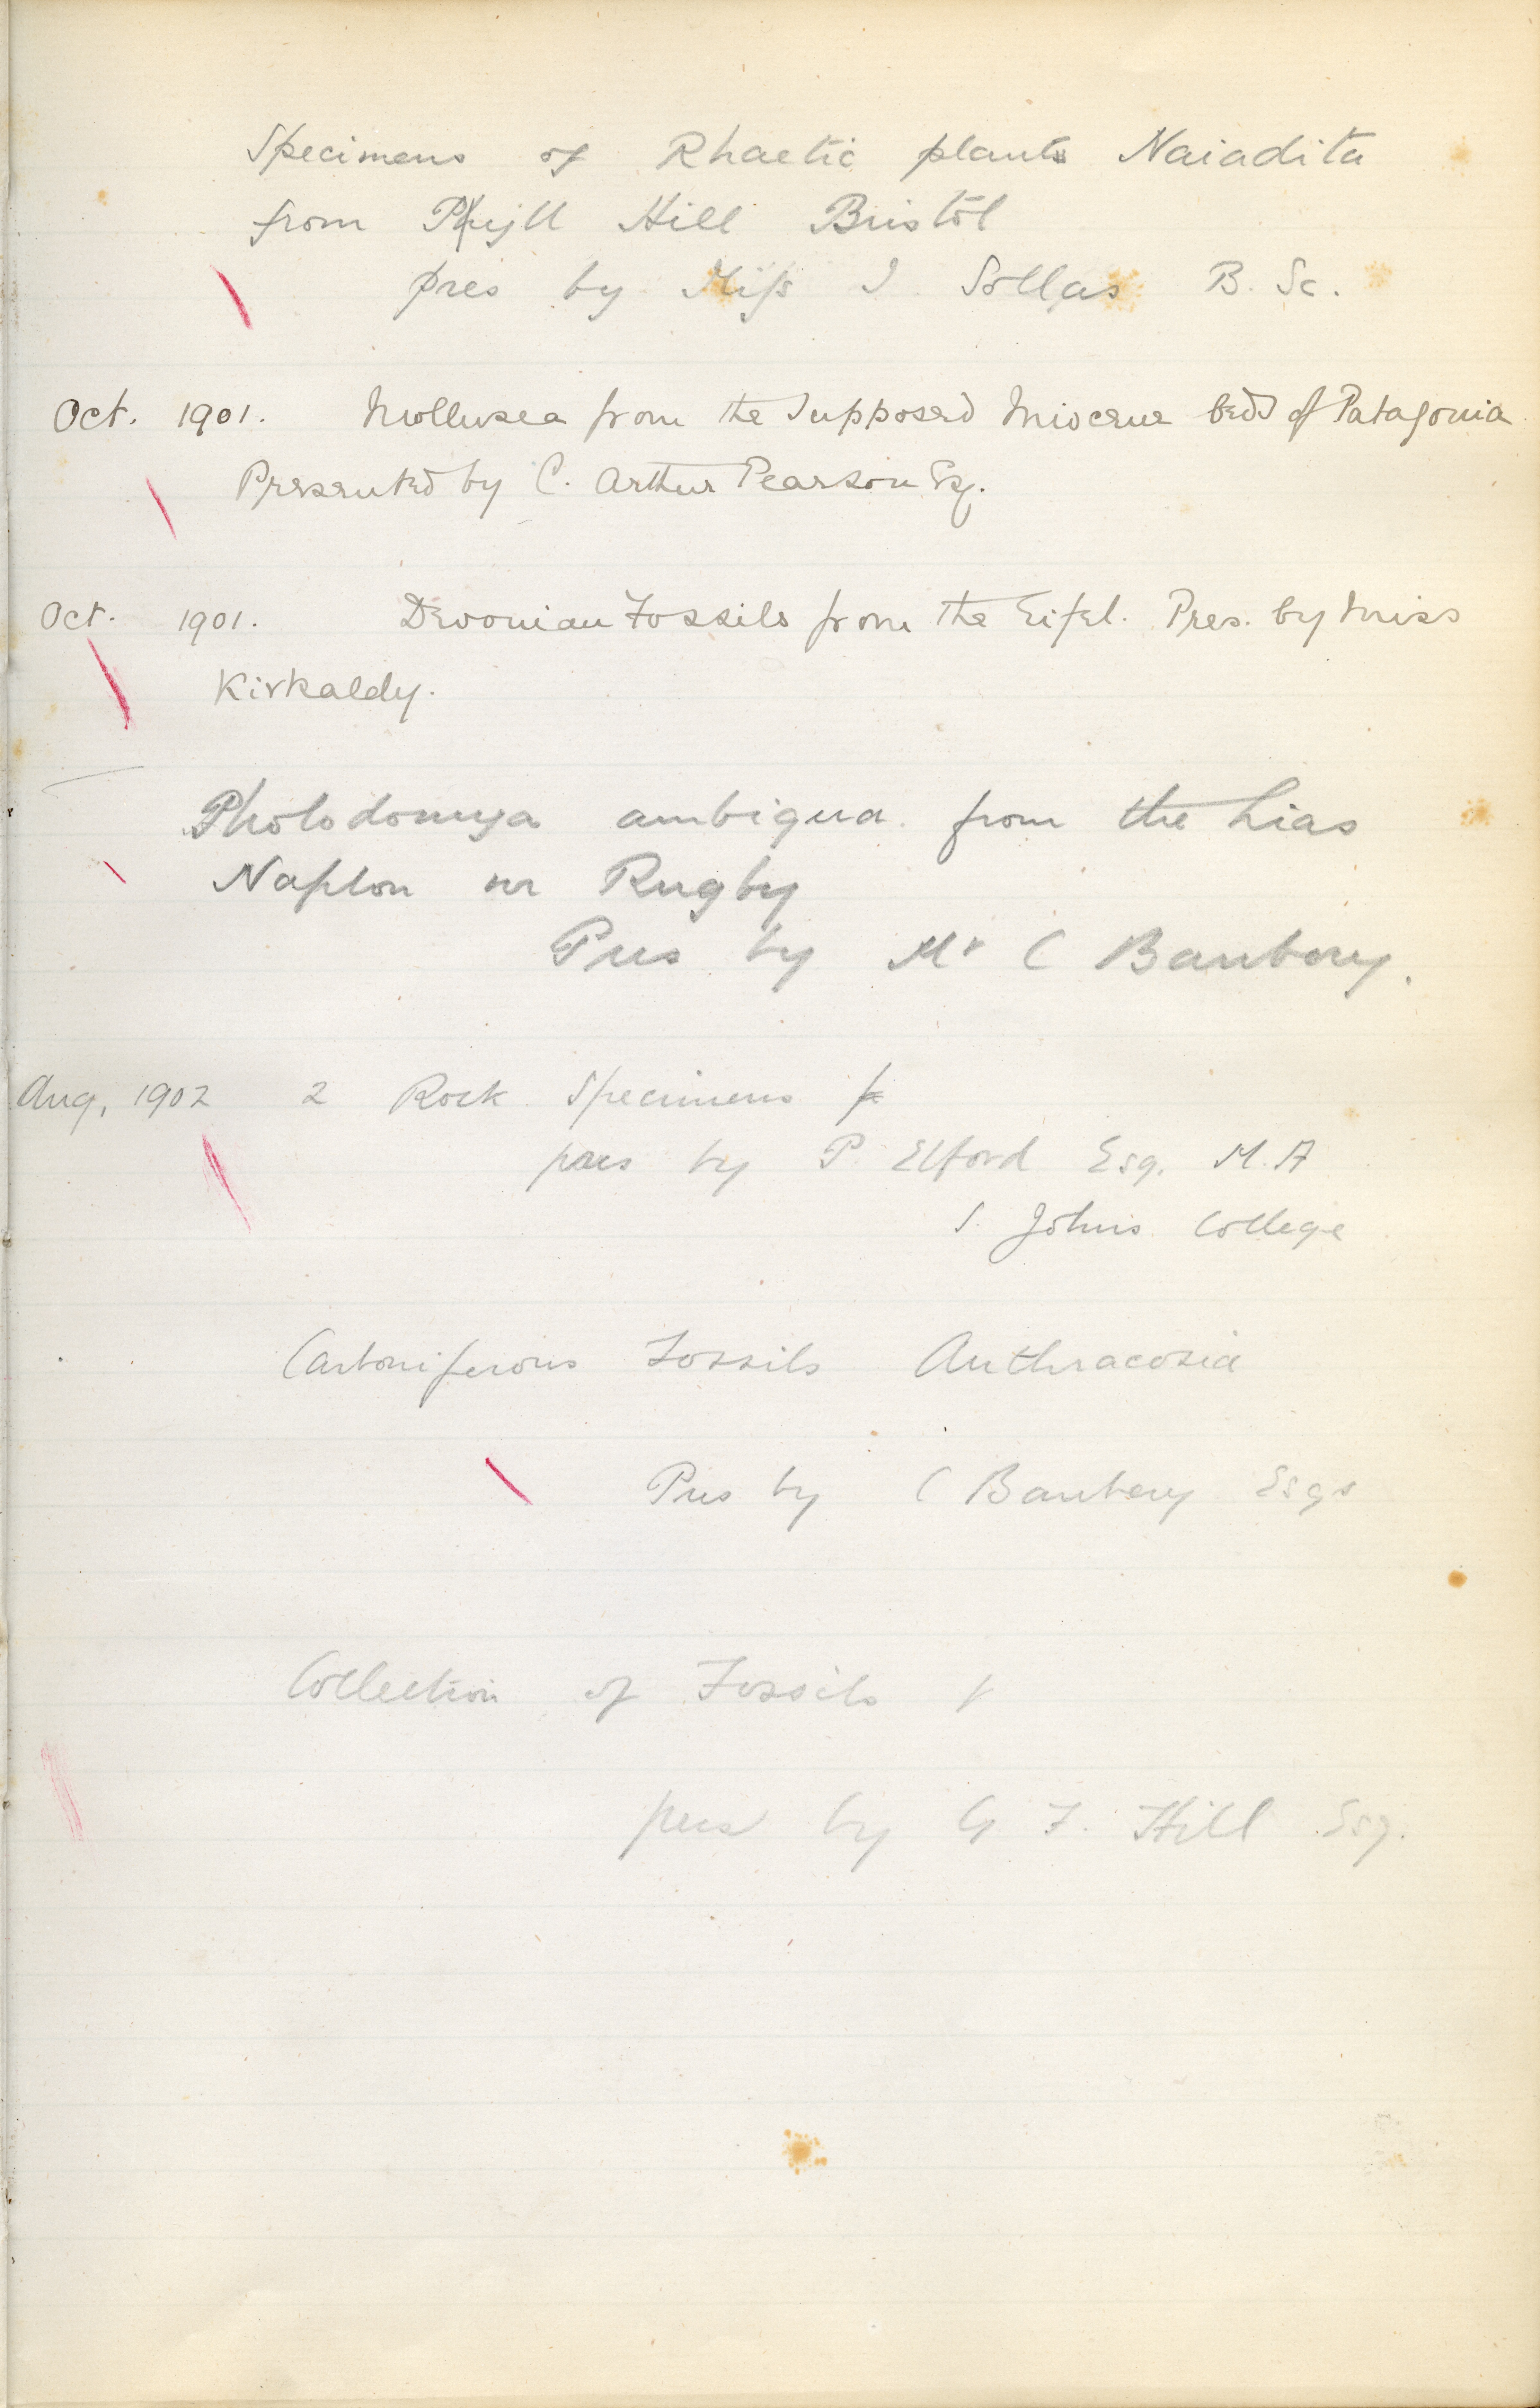 Specimens of Rhaetic plants Naiadita
from Pyll Hill Bristol
pres by Miss I Sollas B. Sc.
Oct. 1901. Mollusca from the supposed Miocene beds of Patagonia
Presented by C. Arthur Pearson Esq.
Oct. 1901. Devonian Fossils from the Eifel. Pres. by Miss
Kirkaldy.
Pholodomya ambigua from the Lias
Napton nr Rugby
Pres by Mr C Banbery.
Aug, 1902 2 Rock Specimens
pres by P. Elford Esq. M.A
S. Johns College
Carboniferous Fossils Anthracosia
Pres by C Banbery Esqr
Collection of Fossils
pres by G F. Hill Esq.